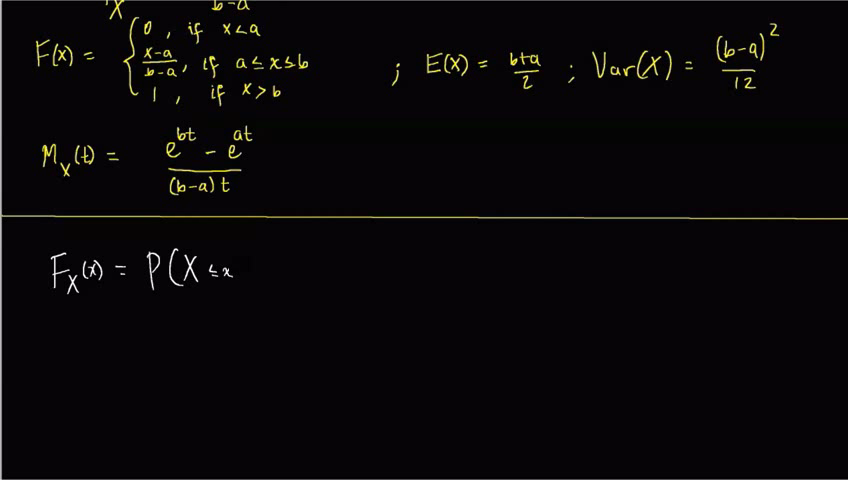 X b-a
F(x) = { 0, if x<a
x-a/b-a, if a≤x≤b
1, if x>b
; E(X) = b+a/2 ; Var(X) = (b-a)²/12
M_X(t) = e^bt - e^at / (b-a)t
F_X(x) = P(X ≤x